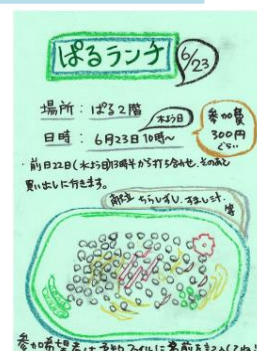 ぱるランチ 6/23
場所：ぱる2階
木よう日
日時：6月23日10時〜
参加費
300円
ぐらい
・前日22日(水よう日)13時半から打ち合わせ、そのあと
買い出しに行きます。
献立 ちらしずし、すまし汁、
等
参加希望者は予約ファイルに名前を記入してね!